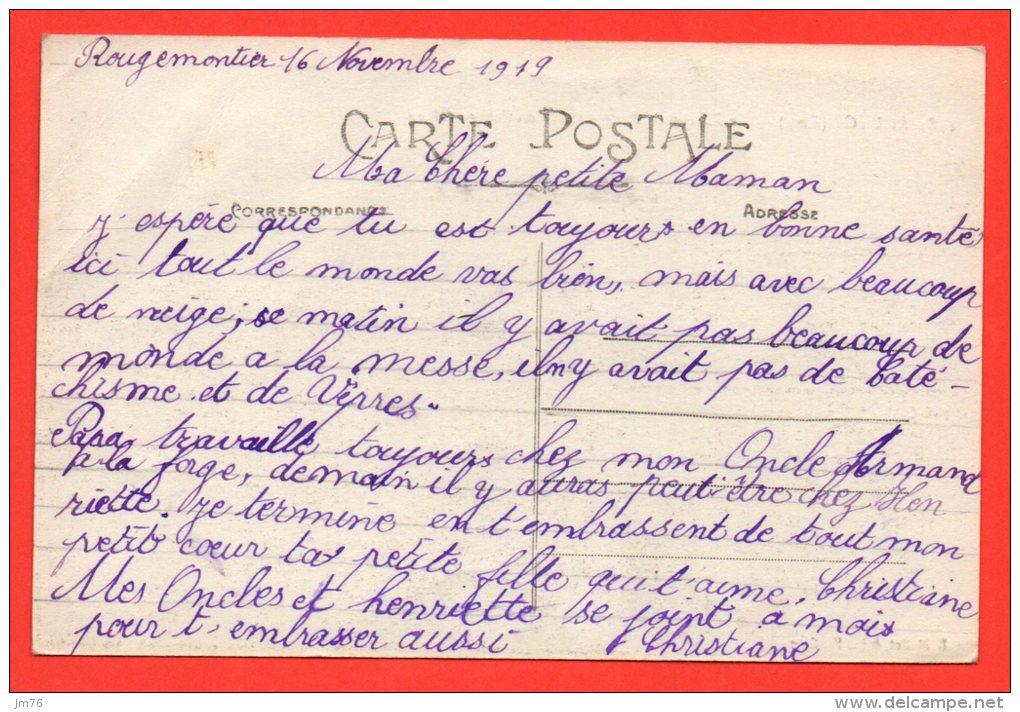 Rougemontier 16 Novembre 1919
CARTE POSTALE
Ma Chère petite Maman
CORRESPONDANCE
ADRESSE
j'espère que tu est toujours en bonne santé
ici tout le monde vas bien, mais avec beaucoup
de neige, se matin il y avait pas beaucoup de
monde a la messe, il ny avait pas de caté-
chisme et de Vêpres.
Papa travaille toujours chez mon Oncle Armand
a la forge, demain il y auras peut être chez Hen
riette. je termine en t'embrassent de tout mon
petit cœur ta petite fille qui t'aime, Christiane
Mes Oncles et henriette se joint a mois
pour t'embrasser aussi Christiane
jm76
www.delcampe.net